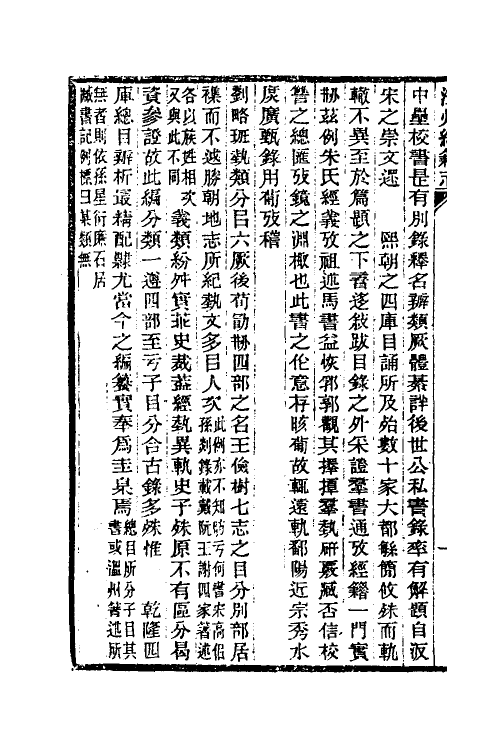 中壘校書是有別錄釋名辯類厥體綦詳後世公私書錄率有解題自汳
宋之崇文逯　熙朝之四庫目誦所及殆數十家大都緐簡攸殊而軌
轍不異至於篇題之下香迻敘跋目錄之外采證羣書通攷經籍一門實
刱茲例朱氏經義攷祖述馬書益恢郛郭觀其擇撢羣埶研覈臧否信校
讐之總匯攷鏡之淵棷也此書之作意存晐葡故輒遠軌鄱陽近宗秀水
庶廣甄錄用葡攷稽
劉略班埶類分曰六厥後荀勖刱四部之名王儉樹七志之目分別部居
襍而不越勝朝地志所紀埶文多目人次此例亦不知昉亏何書宋高佀
孫剡錄載戴阮王謝四家著述
各以族姓相次
又與此不同義類紛舛實乖史裁葢經埶異軌史子殊原不有區分曷
資參證故此編分類一遵四部至亏子目分合古錄多殊惟　乾隆四
庫總目辨析最精配隸尤當今之編纂實奉爲圭臬焉總目所分子目其
書或溫州著述所
無者則依孫星衍廉石居
臧書記例標曰某類無